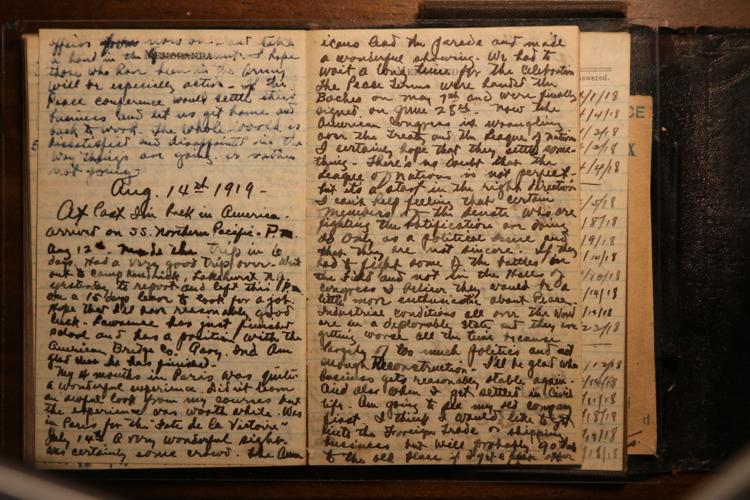 affairs from now on and take
a hand in the I hope
MEMORANDA
those who have been in the army
will be especially active. If the
Peace conference would settle their
business and let us get home and
back to work. The whole world is
dissatisfied and disappointed in the
way things are going, or rather
not going
Aug. 14th 1919 -
At last I'm back in America.
arrived on SS. Northern Pacific - P.m.
Aug 12th. Made the trip in 6
days. Had a very good trip over. Went
out to Camp Kendrick, Lakehurst N.J.
yesterday to report and left this P.m.
on a 15 days leave to look for a job.
Hope that I'll have reasonably good
luck. Lawrence has just finished
school and has a position with the
American Bridge Co. Gary. Ind. Am
glad that he has finished.
My 4 months in Paris was quite
a wonderful experience. Did it learn
an awful lot from my courses but
the experience was worth while. Was
in Paris for the "Fete de la Victoire"
July 14th. A very wonderful sight.
Was certainly some crowd. The Amer-
icans lead the parade and made
a wonderful showing. We had to
wait a long time for the celebration
The Peace Terms were handed the
Boches on May 7th and were finally
signed on June 28th. Now the
American Congress is wrangling
over the Treaty and the League of Nations
I certainly hope that they settle some-
thing. There's no doubt that the
League of Nations is not perfect.
but its a start in the right direction
I can't help feeling that certain
members of the Senate who are
fighting the ratification are doing
so only as a political issue and
that they are not sincere. If they
had to fight some of the battles in
the field and not in the Halls of
Congress I believe they would be a
little more enthusiastic about Peace.
Industrial conditions all over the World
are in a deplorable state and they are
getting worse all the time because
largely of too much politics and not
enough Reconstruction. I'll be glad when
business gets reasonably stable again.
And also when I get settled in Civil
life. Am going to see my old company
first. I think I would like to get
into the Foreign Trade or Shipping
business but will probably go back
to the old place if I get a offer
swered.